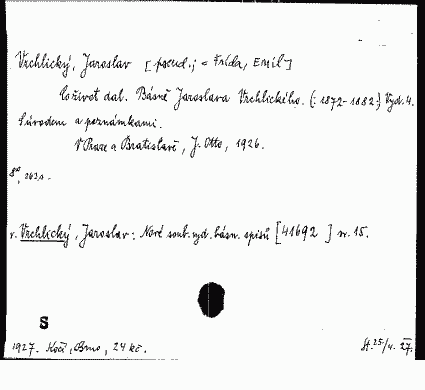 Vrchlický, Jaroslav [pseud.; = Frída, Emil]
Co život dal. Básně Jaroslava Vrchlického. (: 1872-1882:) Vyd. 4.
S úvodem a poznámkami.
V Praze a Bratislavě, J. Otto, 1926.
8°, 263 s.
v. Vrchlický, Jaroslav: Nové soub. vyd. básn. spisů [41692] sv. 15.
S
1927. Kočí, Brno, 24 kč. St. 25/4. 27.